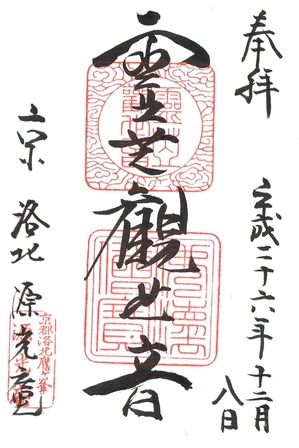 奉拝
平成二十六年十二月
八日
霊芝観世音
京 洛北 源光庵
京都洛北鷹ヶ峯